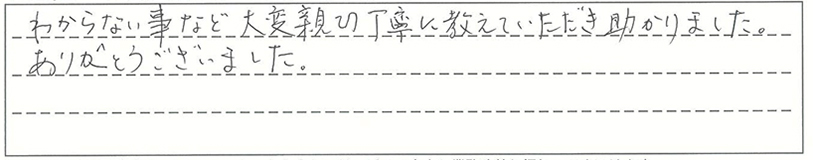 わからない事など大変親切丁寧に教えていただき助かりました。
ありがとうございました。